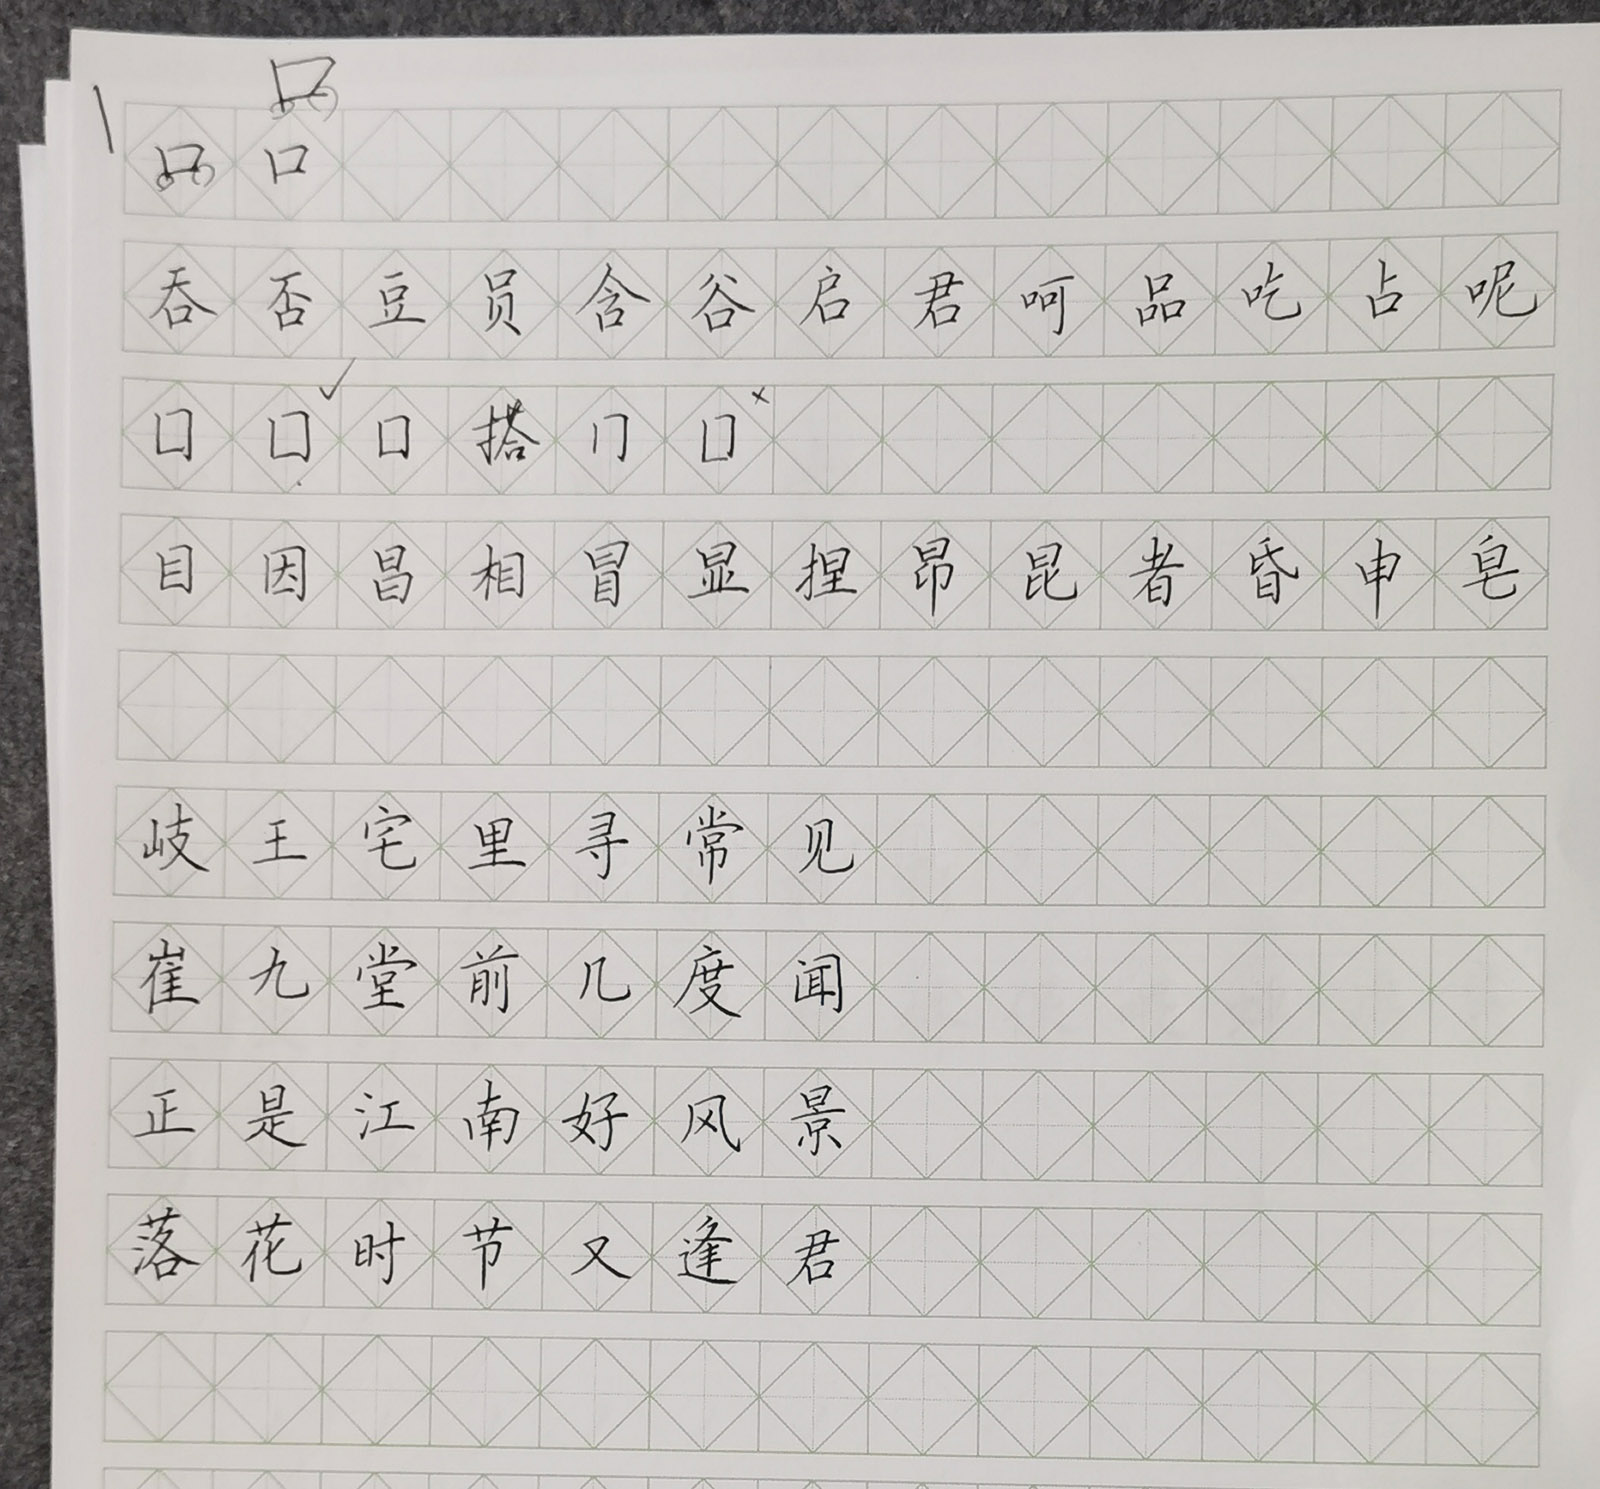 口
口 口
吞否豆员含谷启君呵品吃占呢
口口口搭门口
目因昌相冒显捏昂昆者昏申皂
岐王宅里寻常见
崔九堂前几度闻
正是江南好风景
落花时节又逢君